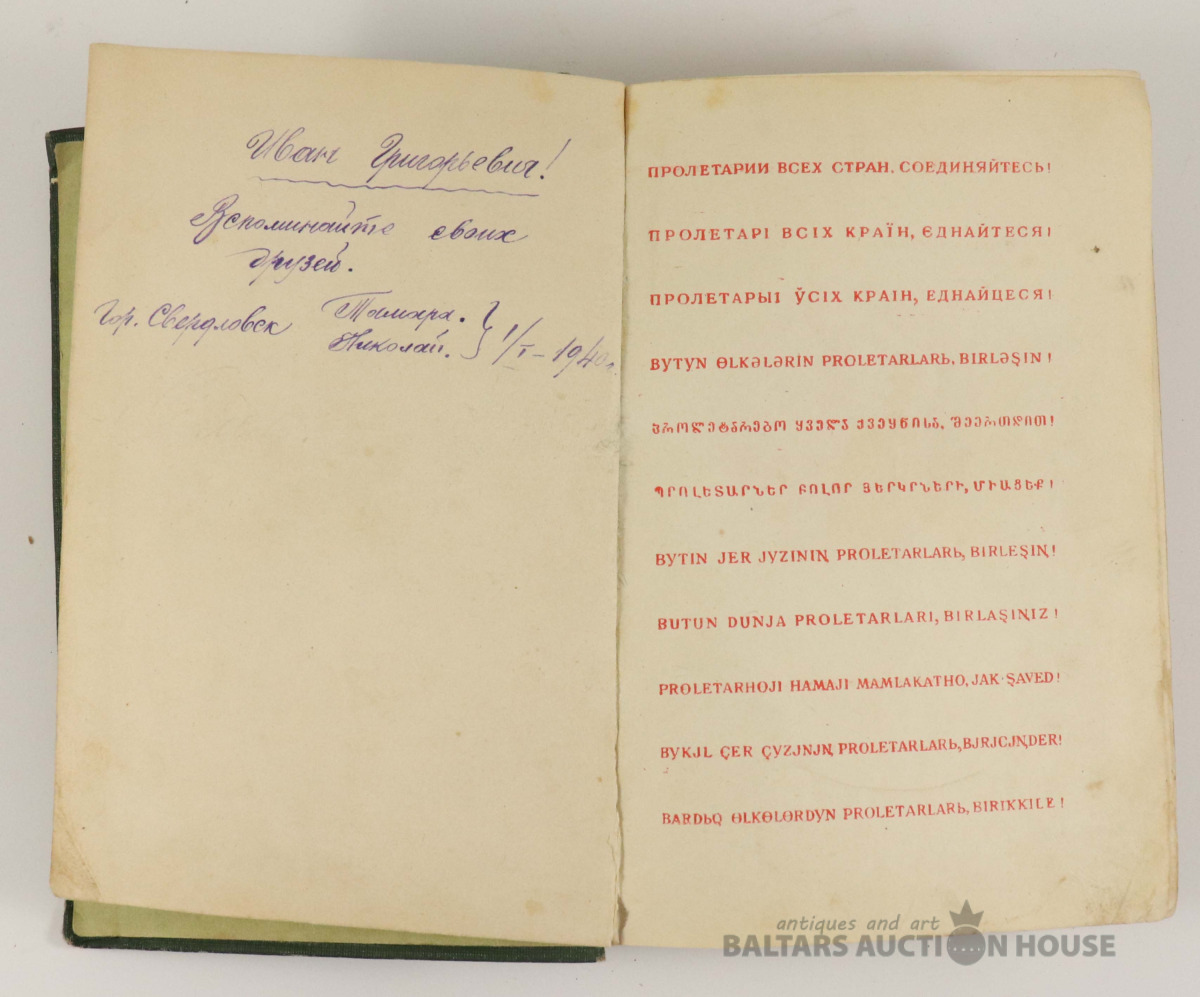 Иван Григорьевич!
Вспоминайте своих
друзей.
Гор. Свердловск
Тамара.
Николай.
1/I – 1940 г.
ПРОЛЕТАРИИ ВСЕХ СТРАН, СОЕДИНЯЙТЕСЬ!
ПРОЛЕТАРІ ВСІХ КРАЇН, ЄДНАЙТЕСЯ!
ПРОЛЕТАРЫІ ЎСІХ КРАІН, ЕДНАЙЦЕСЯ!
BYTYN ӨLKƏLƏRIN PROLETARLARЬ, BIRLƏŞIN!
ᲞᲠᲝᲚᲔᲢᲐᲠᲔᲑᲝ ᲧᲕᲔᲚᲐ ᲥᲕᲔᲧᲜᲘᲡᲐ, ᲨᲔᲔᲠᲗᲓᲘᲗ!
ՊՐՈԼԵՏԱՐՆԵՐ ԲՈԼՈՐ ՅԵՐԿՐՆԵՐԻ, ՄԻԱՑԵՔ!
BYTIN JER JYZINIꞐ PROLETARLARЬ, BIRLEŞIꞐ!
BUTUN DUNJA PROLETARLARI, BIRLAŞIꞐIZ!
PROLETARHOJI HAMAJI MAMLAKATHO, JAK ŞAVED!
BYKJL ÇER ÇYZJNJꞐ PROLETARLARЬ, BJRJCJꞐDER!
BARDЬQ ӨLKӨLӨRDYN PROLETARLARЬ, BIRIKKILE!
antiques and art
BALTARS AUCTION HOUSE